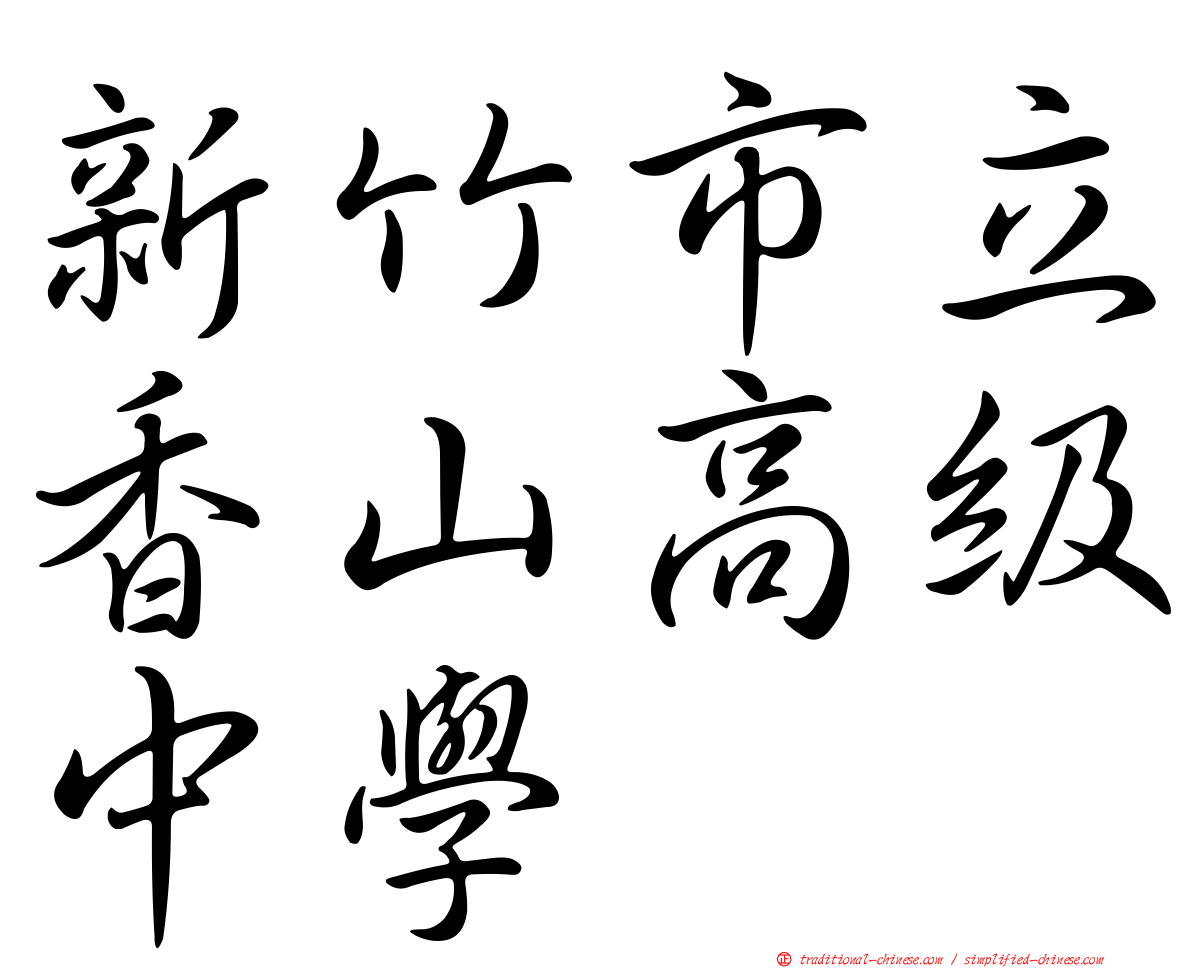 新竹市立
香山高級
中學
正 traditional-chinese.com / simplified-chinese.com